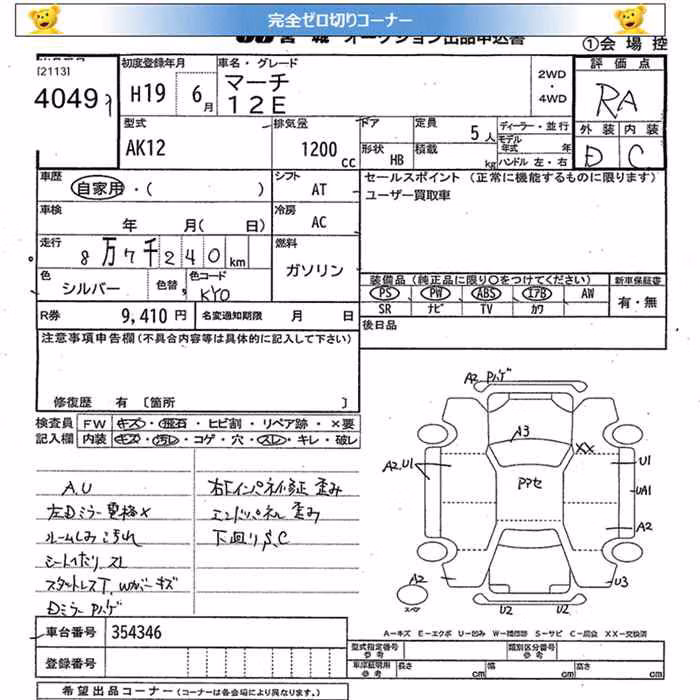 完全ゼロ切りコーナー
オークション出品申込書
①会 場 控
[2113]
4049
初度登録年月
H19 6月
車名・グレード
マーチ
12E
2WD
・
4WD
評 価 点
RA
外 装 内 装
D C
型式
AK12
排気量
1200cc
ドア
形状 HB
定員 5人
積載 kg
ディーラー・並行
モデル年式 年
ハンドル 左・右
車歴
自家用・( )
シフト
AT
セールスポイント (正常に機能するものに限ります)
ユーザー買取車
車検
年 月( 日)
冷房
AC
走行
8万7千240km
燃料
ガソリン
色
シルバー
色替
色コード
KY0
装備品 (純正品に限り○をつけてください)
新車保証書
PS PW ABS エアB AW
SR ナビ TV カワ
有・無
R券 9,410 円
名変通知期限 月 日
後日品
注意事項申告欄(不具合内容等は具体的に記入して下さい)
修復歴 有 〔箇所 〕
検査員記入欄
FW キズ・飛石・ヒビ割・リペア跡・×要
内装 キズ・汚レ・コゲ・穴・スレ・キレ・破レ
A,U
左Dミラー電格×
ルームしみ汚れ
シートへたり スレ
スタットレスT, Wカバーキズ
Dミラー Pハゲ
右Fインパネ修正 歪み
エンドパネル 歪み
下廻りS,C
A2 Pハゲ
A3
XX
A2,U1
PPセ
U1
UA1
A2
A2
U3
スペア
U2 U2
A－キズ E－エクボ U－凹み W－補修跡 S－サビ C－腐食 XX－交換済
車台番号 354346
登録番号
型式指定番号
参 考
類別区分番号
参 考
車庫証明用
参 考
長さ cm
幅 cm
高さ cm
希望出品コーナー (コーナーは各会場により異なります。)